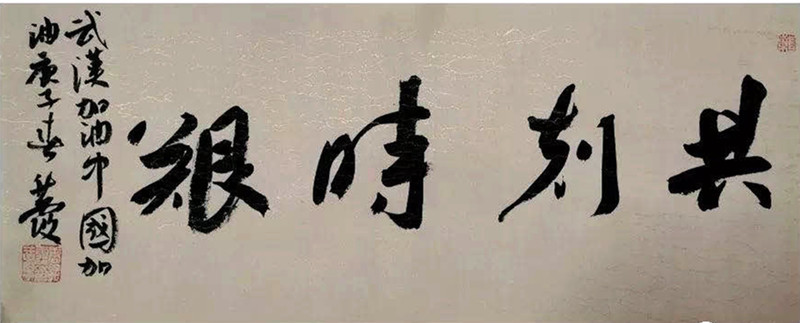 共剋時艰
武漢加油中國加
油庚子春